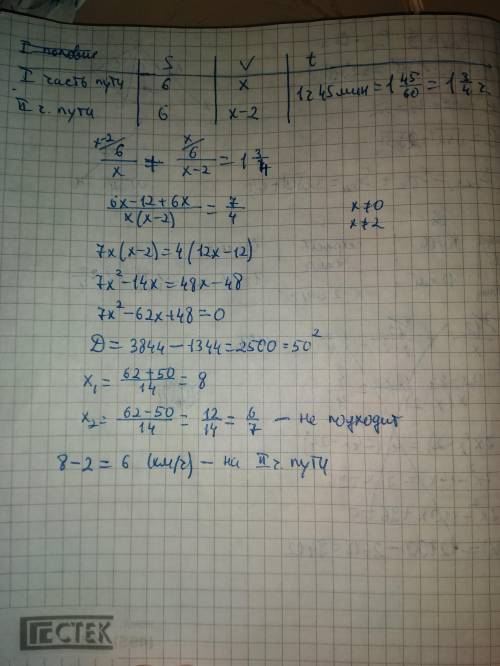 I половин
S V t
I часть пути 6 x 1ч 45 мин = 1 45/60 = 1 3/4 ч
II ч. пути 6 x-2
x-2/ 6/x + x/ 6/(x-2) = 1 3/4
(6x-12+6x)/(x(x-2)) = 7/4 x≠0
x≠2
7x(x-2)=4(12x-12)
7x²-14x=48x-48
7x²-62x+48=0
D = 3844-1344=2500=50²
x₁ = (62+50)/14 = 8
x₂ = (62-50)/14 = 12/14 = 6/7 — не подходит
8-2=6 (км/ч) — на II ч. пути
ГЕСТЕК